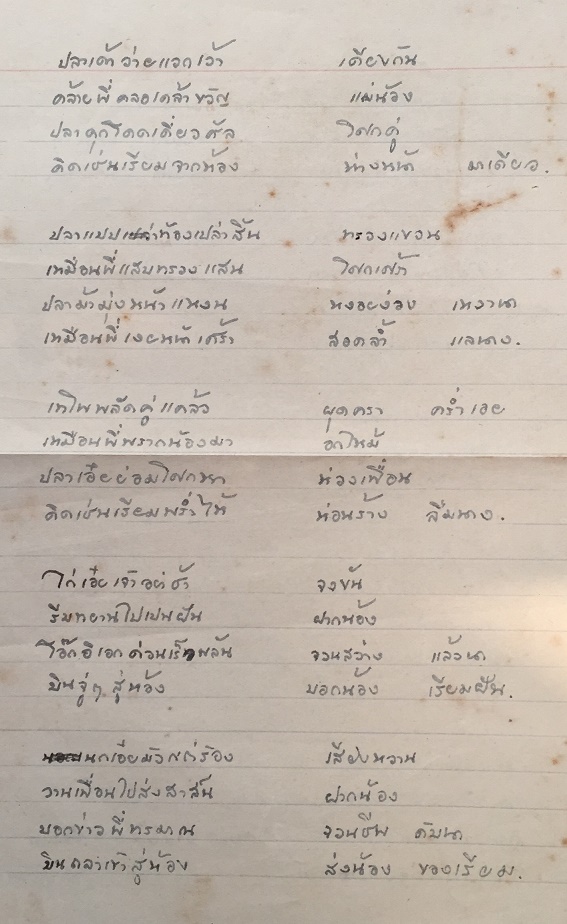 ปลาเค้าว่ายแจกเว้า เคียงกัน
คล้ายพี่คลอเคล้าขวัญ แม่น้อง
ปลาดุกโดดเดี่ยว คู่
คิดเช่นเรียมจากน้อง ห่างหน้า มาเดียว.
ปลาแปบ ท้องเปล่าสิ้น ทรวงแขวน
เหมือนพี่แสบทรวงแสน โศกเศร้า
ปลาม้ามุ่งหน้าแหงน หงอยง่วง เหงานา
เหมือนพี่เงยหน้าเศร้า สอดส่ำ แลนาง.
เทโพพลัดคู่แคล้ว ผุดครา คร่ำเอย
เหมือนพี่พรากน้องมา อกไหม้
ปลาเอ๋ยย่อมโศกหา ห่วงเพื่อน
คิดเช่นเรียมพร่ำไห้ ห่อนร้าง ลืมนาง.
ไก่เอ๋ยเจ้าอย่าช้า จงขัน
รีบทยานไปเป็นฝัน ฝากน้อง
โอ๊กอิเอกด่วนเร็วพลัน จวนสว่าง แล้วนา
บินจู่ๆ สู่ห้อง บอกน้อง เรียมฝัน.
นกเอียมัวแต่ร้อง เสียงหวาน
วานเพื่อนไปส่งสาส์น ฝากน้อง
บอกข่าวพี่ทรมาณ จวนชีพ ดับนา
บินถลาเข้าสู่ห้อง ส่งน้อง ของเรียม.